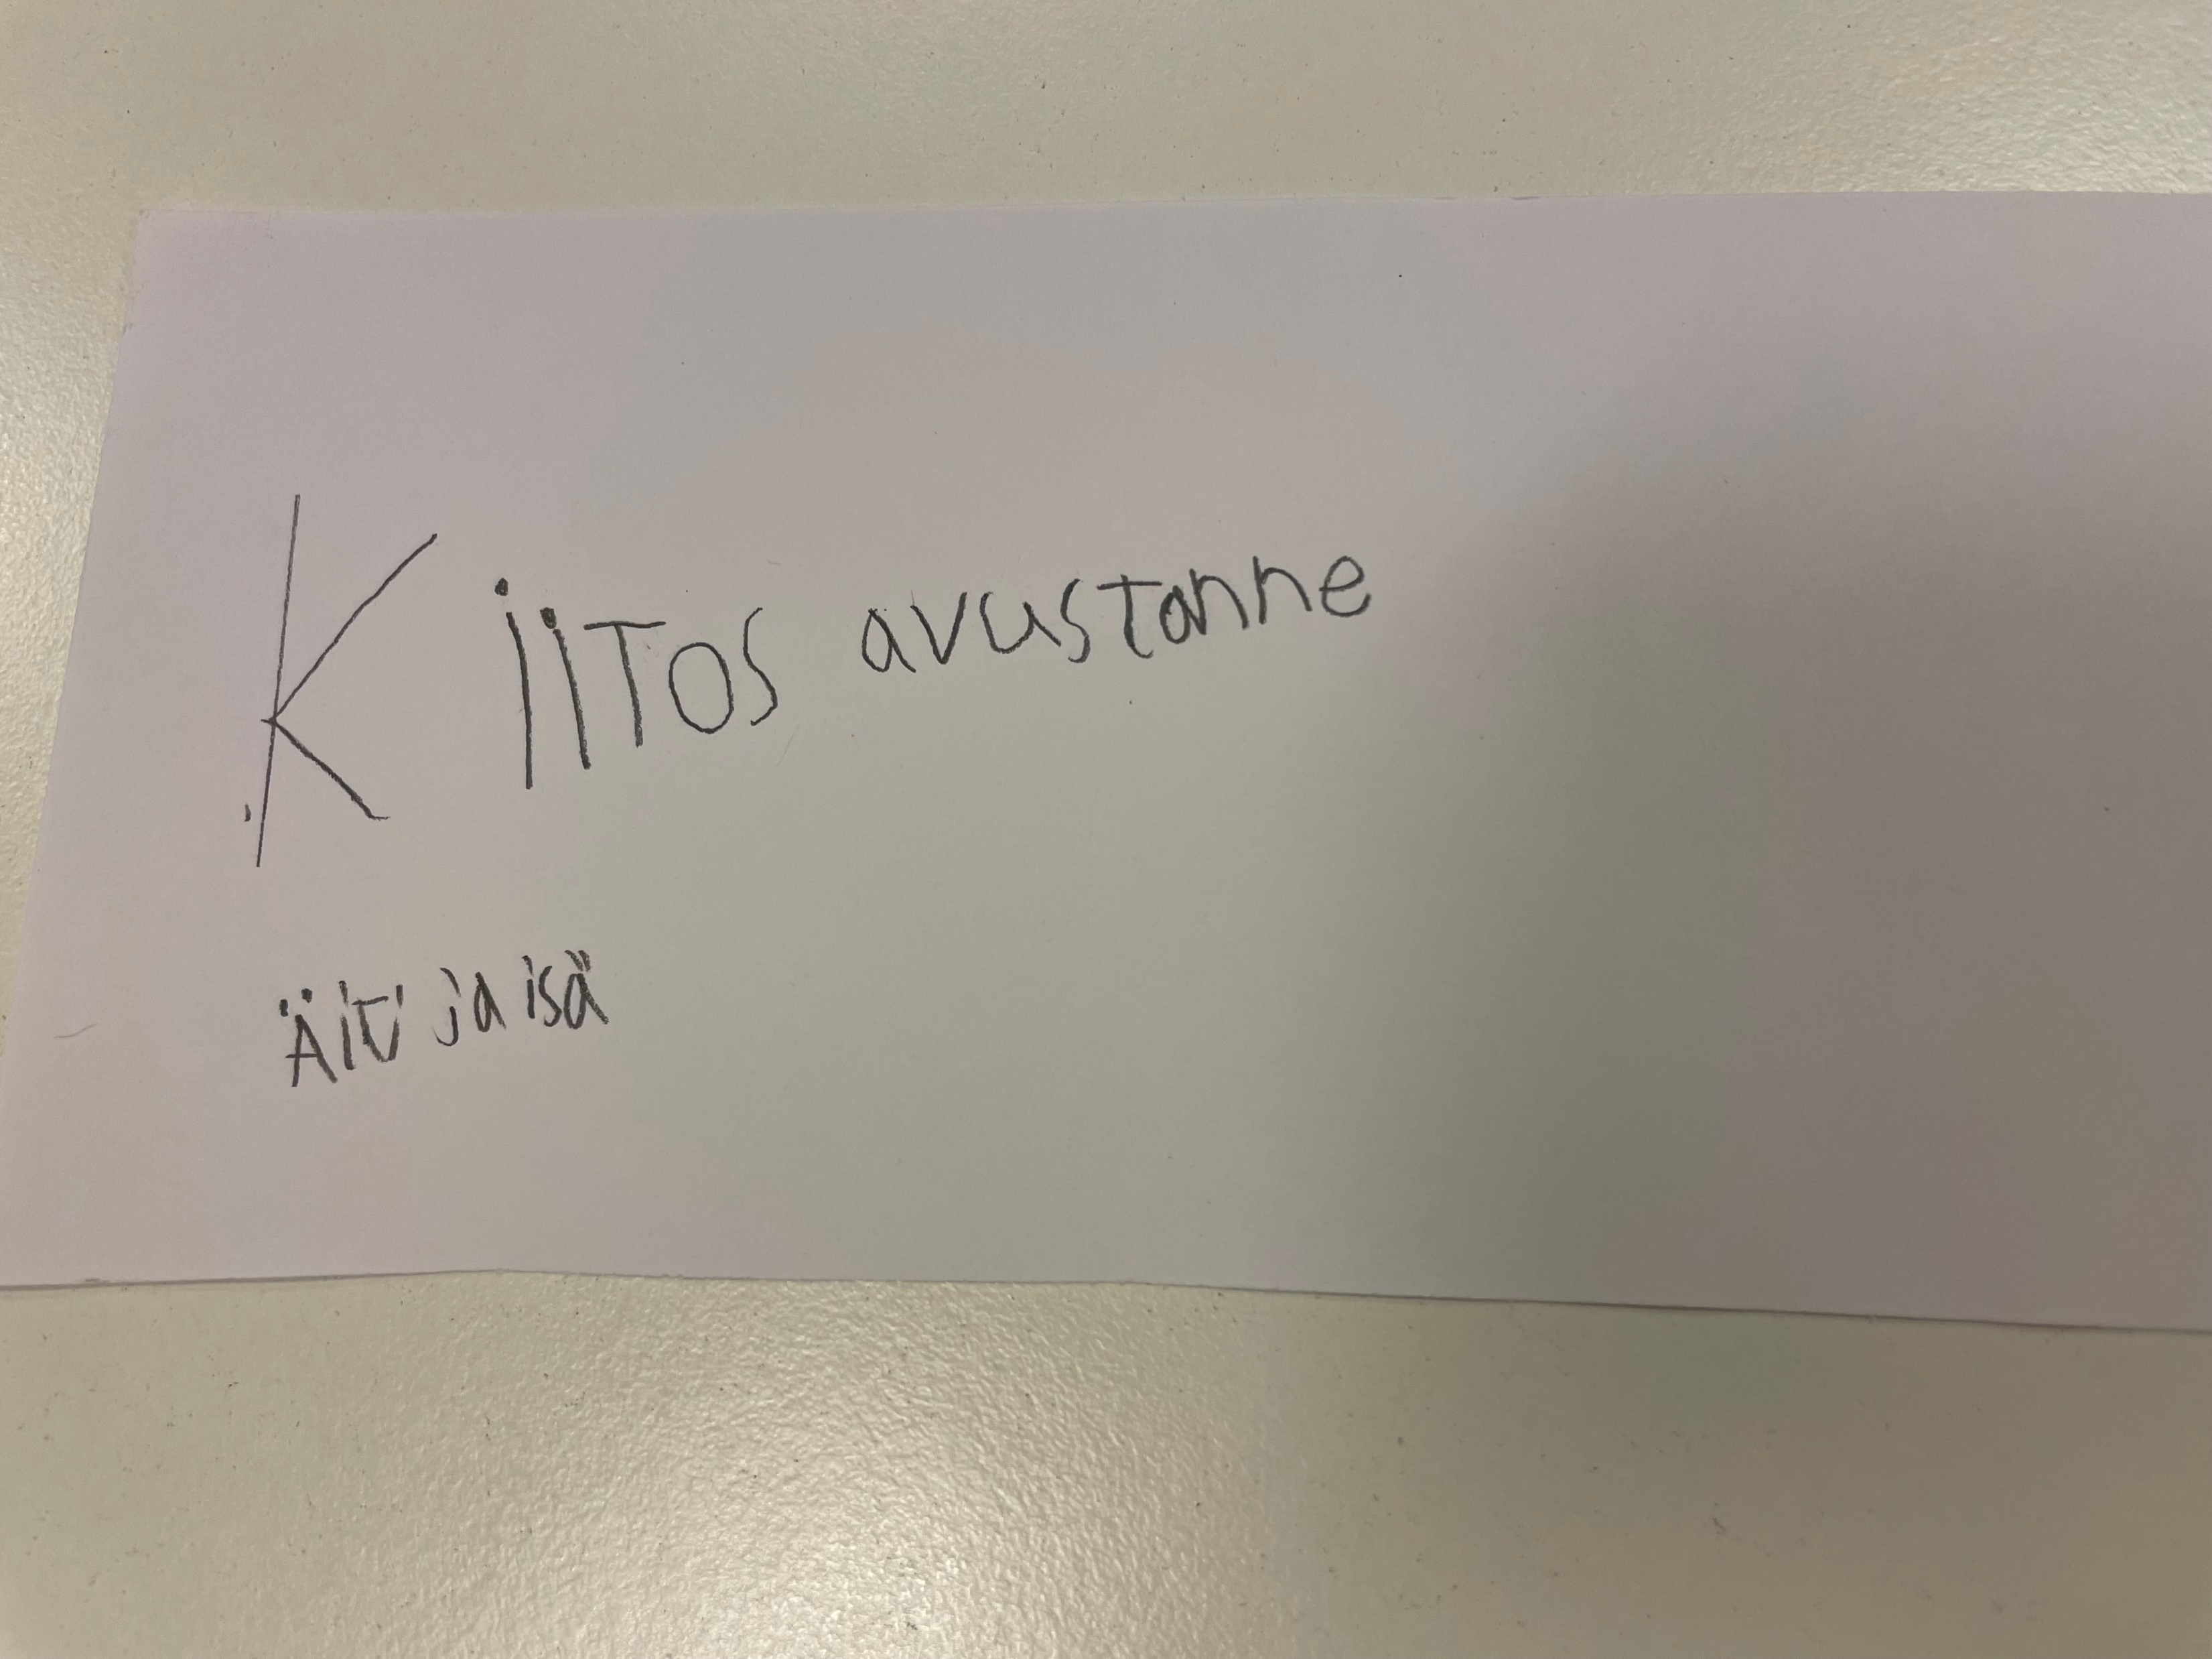 Kiitos avustanne
Äiti ja isä